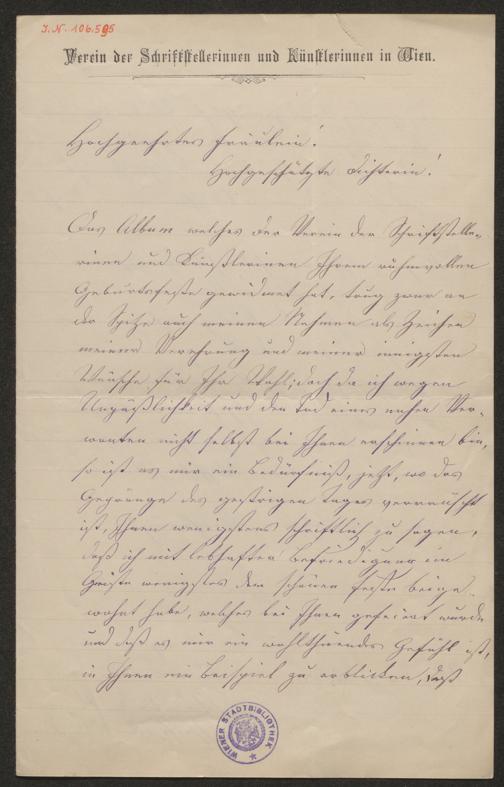 J.N. 106.595
Verein der Schriftstellerinnen und Künstlerinnen in Wien.
Hochgeehrtes Fräulein!
Hochgeschätzte Dichterin!
Das Album welches der Verein der Schriftstelle-
rinen und Künstlerinen Ihrem ruhmvollen
Geburtsfeste gewidmet hat, trug zwar an
der Spitze auch meinen Nahmen als Zeichen
meiner Verehrung und meiner innigsten
Wünsche für Ihr Wohl; doch da ich wegen
Unpäßlichkeit und den Tod eines nahen Ver-
wanten nicht selbst bei Ihnen erschienen bin,
so ist es mir ein Bedürfniß, jetzt, wo das
Gepränge des gestrigen Tages verrauscht
ist, Ihnen wenigstens schriftlich zu sagen,
daß ich mit lebhafter Befriedigung im
Geiste wenigstes dem schönen Feste beige-
wohnt habe, welches bei Ihnen gefeiert wurde
und daß es mir ein wohlthuendes Gefühl ist,
in Ihnen ein Beispiel zu erblicken, daß
WIENER STADTBIBLIOTHEK